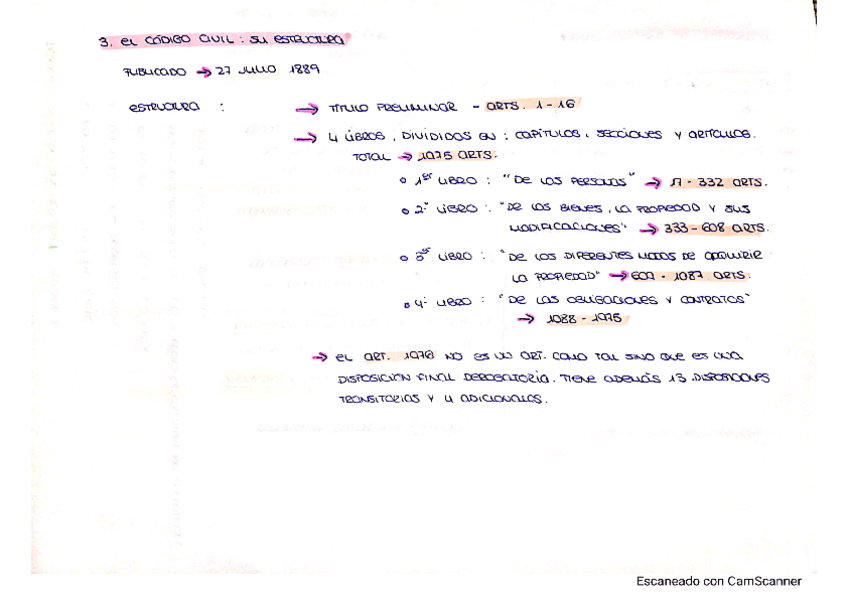 3. EL CÓDIGO CIVIL: SU ESTRUCTURA
PUBLICADO → 27 JULIO 1889
ESTRUCTURA : → TÍTULO PRELIMINAR - ARTS. 1-16
→ 4 LIBROS, DIVIDIDOS EN: CAPÍTULOS, SECCIONES Y ARTÍCULOS.
TOTAL → 1975 ARTS.
o 1er LIBRO : "DE LAS PERSONAS" → 17 - 332 ARTS.
o 2º LIBRO : "DE LOS BIENES, LA PROPIEDAD Y SUS
MODIFICACIONES" → 333 - 608 ARTS.
o 3er LIBRO : "DE LOS DIFERENTES MODOS DE ADQUIRIR
LA PROPIEDAD" → 609 - 1087 ARTS.
o 4º LIBRO : "DE LAS OBLIGACIONES Y CONTRATOS"
→ 1088 - 1975
→ EL ART. 1976 NO ES UN ART. COMO TAL SINO QUE ES UNA
DISPOSICIÓN FINAL DEROGATORIA. TIENE ADEMÁS 13 DISPOSICIONES
TRANSITORIAS Y 4 ADICIONALES.
Escaneado con CamScanner